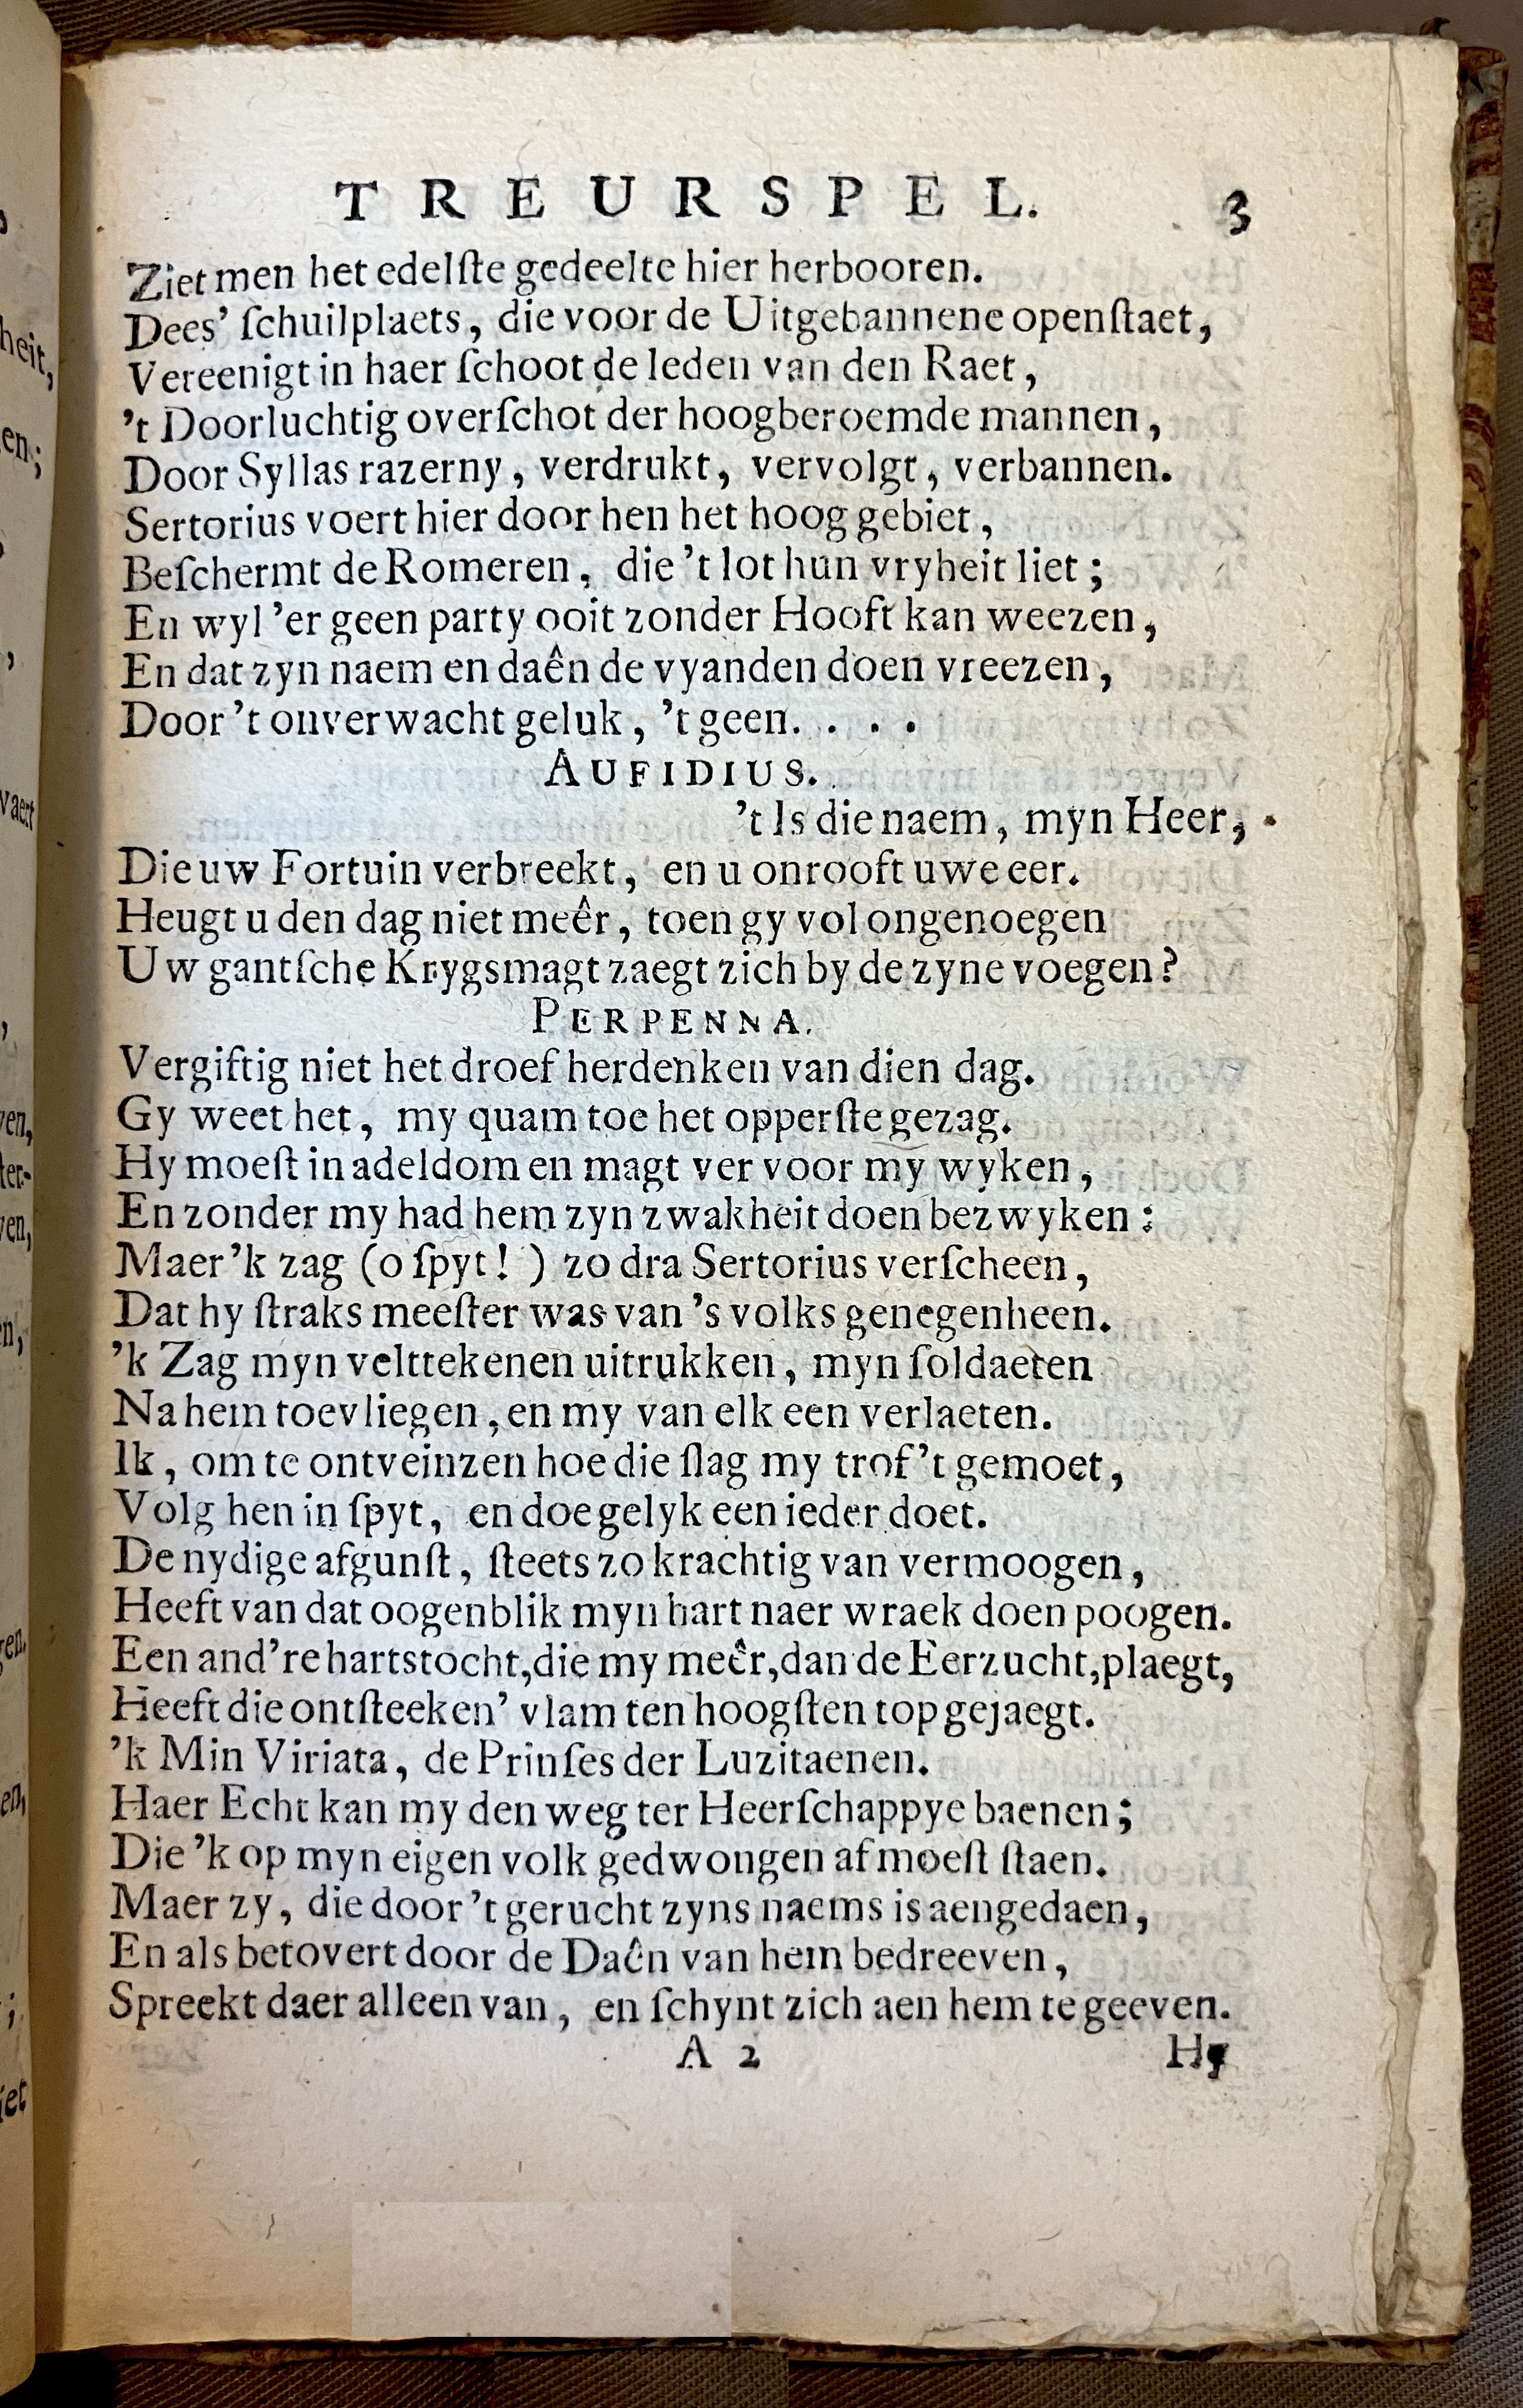 TREURSPEL. 3
Ziet men het edelſte gedeelte hier herbooren.
Dees' ſchuilplaets, die voor de Uitgebannene openſtaet,
Vereenigt in haer ſchoot de leden van den Raet,
't Doorluchtig overſchot der hoogberoemde mannen,
Door Syllas razerny, verdrukt, vervolgt, verbannen.
Sertorius voert hier door hen het hoog gebiet,
Beſchermt de Romeren, die 't lot hun vryheit liet;
En wyl 'er geen party ooit zonder Hooft kan weezen,
En dat zyn naem en daên de vyanden doen vreezen,
Door 't onverwacht geluk, 't geen. . . .
AUFIDIUS.
't Is die naem, myn Heer,
Die uw Fortuin verbreekt, en u onrooft uwe eer.
Heugt u den dag niet meêr, toen gy vol ongenoegen
Uw gantſche Krygsmagt zaegt zich by de zyne voegen?
PERPENNA.
Vergiftig niet het droef herdenken van dien dag.
Gy weet het, my quam toe het opperſte gezag.
Hy moeſt in adeldom en magt ver voor my wyken,
En zonder my had hem zyn zwakheit doen bezwyken:
Maer 'k zag (o ſpyt!) zo dra Sertorius verſcheen,
Dat hy ſtraks meeſter was van 's volks genegenheen.
'k Zag myn velttekenen uitrukken, myn ſoldaeten
Na hem toevliegen, en my van elk een verlaeten.
Ik, om te ontveinzen hoe die ſlag my trof 't gemoet,
Volg hen in ſpyt, en doe gelyk een ieder doet.
De nydige afgunſt, ſteets zo krachtig van vermoogen,
Heeft van dat oogenblik myn hart naer wraek doen poogen.
Een and're hartstocht, die my meêr, dan de Eerzucht, plaegt,
Heeft die ontſteeken' vlam ten hoogſten top gejaegt.
'k Min Viriata, de Prinſes der Luzitaenen.
Haer Echt kan my den weg ter Heerſchappye baenen;
Die 'k op myn eigen volk gedwongen af moeſt ſtaen.
Maer zy, die door 't gerucht zyns naems is aengedaen,
En als betovert door de Daên van hem bedreeven,
Spreekt daer alleen van, en ſchynt zich aen hem te geeven.
A 2 Hy